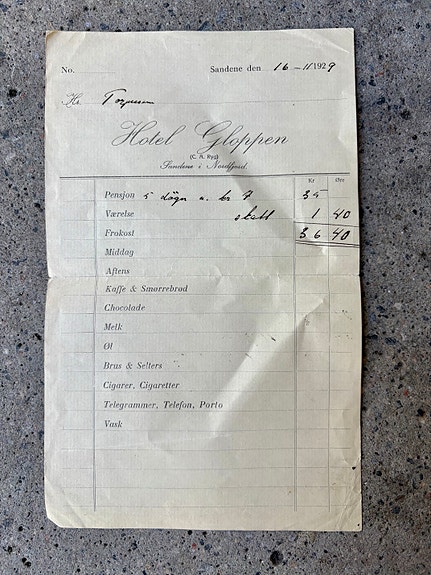 No. Sandene den 16 - 11 1929
Hr.
Hotel Gloppen
(C. A. Ryg)
Sandene i Nordfjord.
Kr Øre
Pensjon 5 døgn a. kr 7 35
Værelse skatt 1 40
Frokost 36 40
Middag
Aftens
Kaffe & Smørrebrød
Chocolade
Melk
Øl
Brus & Selters
Cigarer, Cigaretter
Telegrammer, Telefon, Porto
Vask